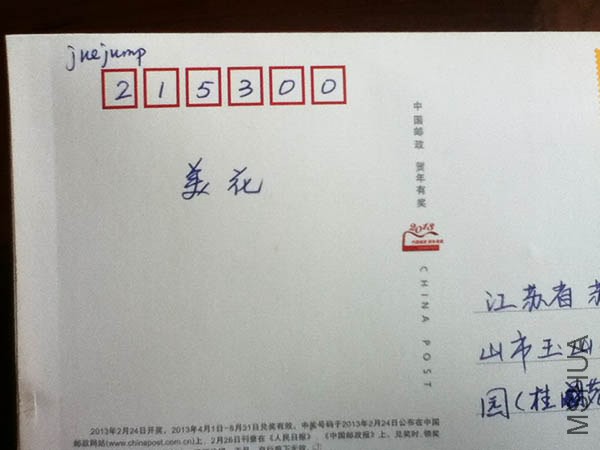 juejump
215300
美花
中国邮政 贺年有奖
2013
CHINA POST
江苏省苏
山市玉山
园(桂
2013年2月24日开奖，2013年4月1日-8月31日兑奖有效，中奖号码于2013年2月24日公布在中国
邮政网站(www.chinapost.com.cn)上，2月26日刊登在《人民日报》《中国邮政报》上，兑奖时，领奖
MEIHUA